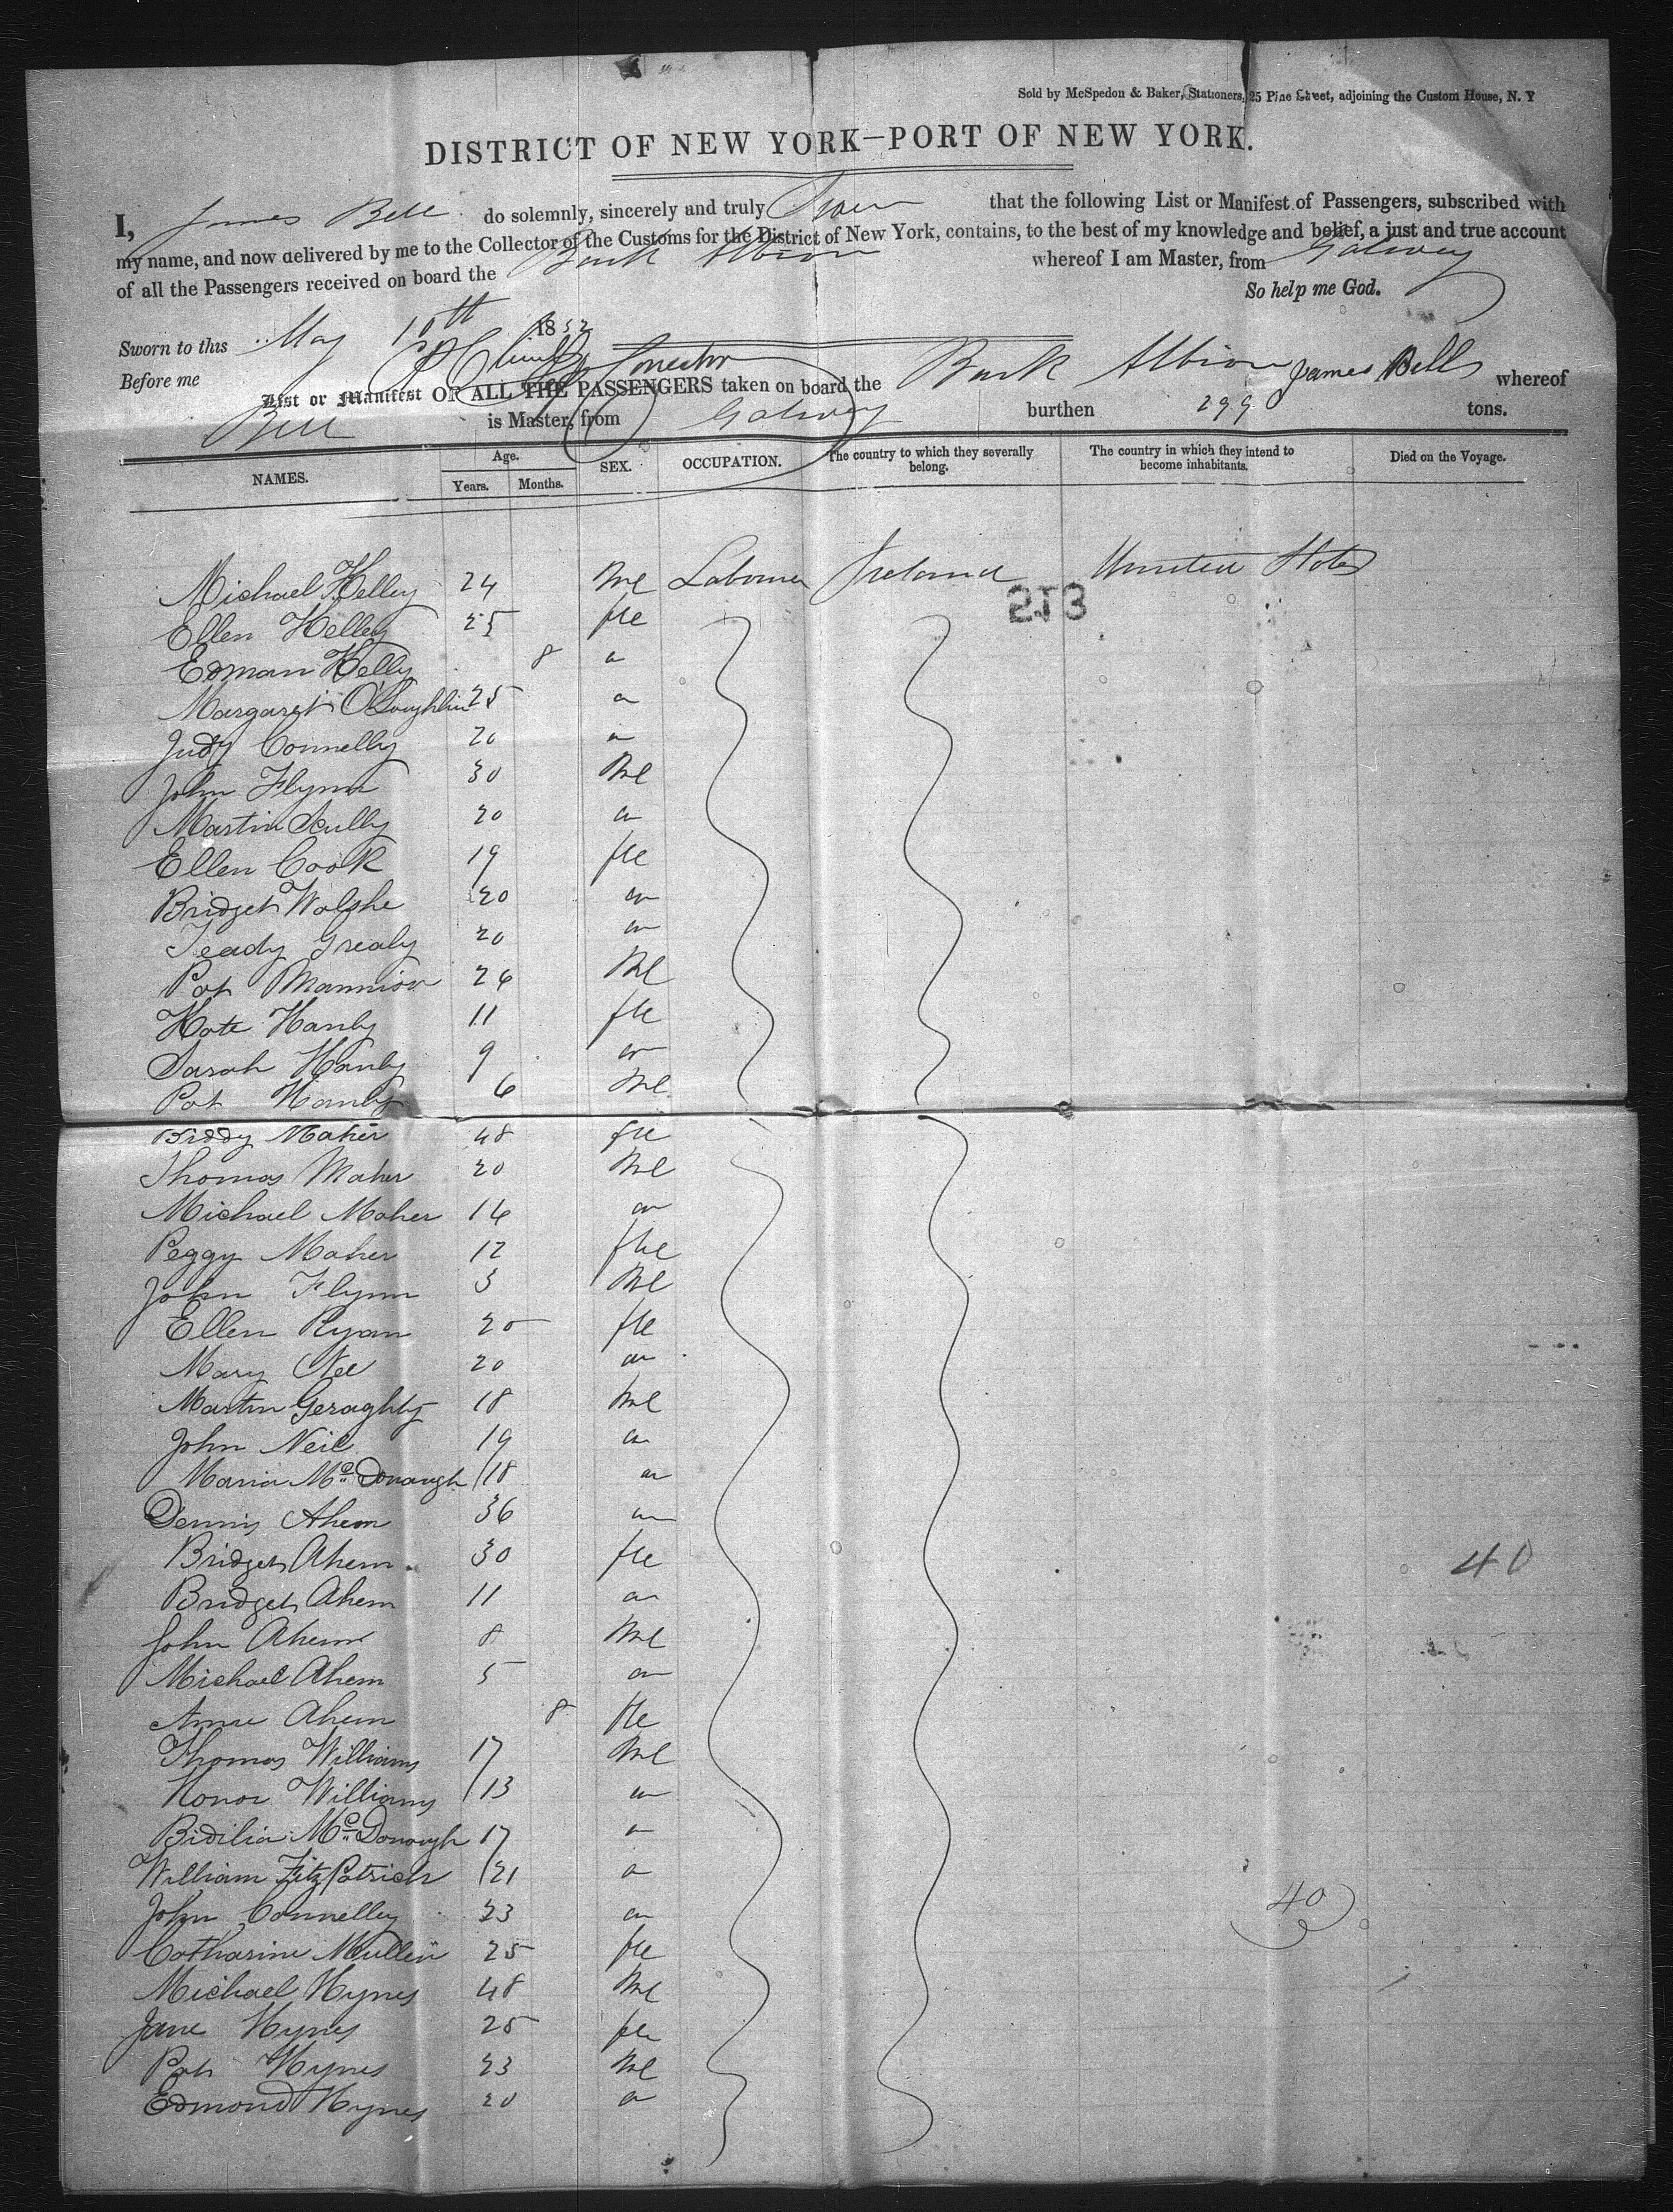 Sold by McSpedon & Baker, Stationers, 25 Pine Street, adjoining the Custom House, N. Y
DISTRICT OF NEW YORK—PORT OF NEW YORK.
I, James Bell do solemnly, sincerely and truly Swear that the following List or Manifest of Passengers, subscribed with
my name, and now delivered by me to the Collector of the Customs for the District of New York, contains, to the best of my knowledge and belief, a just and true account
of all the Passengers received on board the Bark Albion whereof I am Master, from Galway
So help me God.
Sworn to this May 10th 1852
Before me
James Bell
List or Manifest OF ALL THE PASSENGERS taken on board the Bark Albion whereof
Bell is Master, from Galway burthen 299 tons.
NAMES. Age. Years. Months. SEX. OCCUPATION. The country to which they severally belong. The country in which they intend to become inhabitants. Died on the Voyage.
Michael Kelley 24 Ml Labourer Ireland United States
213
Ellen Kelley 25 fle
Edman Kelly 8 "
Margaret O'Loughlin 25 "
Judy Connelly 20 "
John Flynn 30 Ml
Martin Scully 20 "
Ellen Cook 19 fle
Bridget Walshe 20 "
Teady Grealy 20 "
Pat Mannion 26 Ml
Kate Hanly 11 fle
Sarah Hanly 9 "
Pat Hanly 6 Ml
Biddy Maher 48 fle
Thomas Maher 20 Ml
Michael Maher 16 "
Peggy Maher 12 fle
John Flynn 3 Ml
Ellen Ryan 20 fle
Mary Nee 20 "
Martin Geraghty 18 Ml
John Neil 19 "
Maria McDonaugh 18 "
Dennis Ahern 36 "
Bridget Ahern 30 fle 40
Bridget Ahern 11 "
John Ahern 8 Ml
Michael Ahern 5 "
Anne Ahern 8 fle
Thomas Williams 17 Ml
Honor Williams 13 "
Bidilia McDonough 17 "
William FitzPatrick 21 "
John Connelley 23 " 40
Catharine Mullen 25 fle
Michael Hynes 48 Ml
Jane Hynes 25 fle
Pat Hynes 23 Ml
Edmond Hynes 20 "